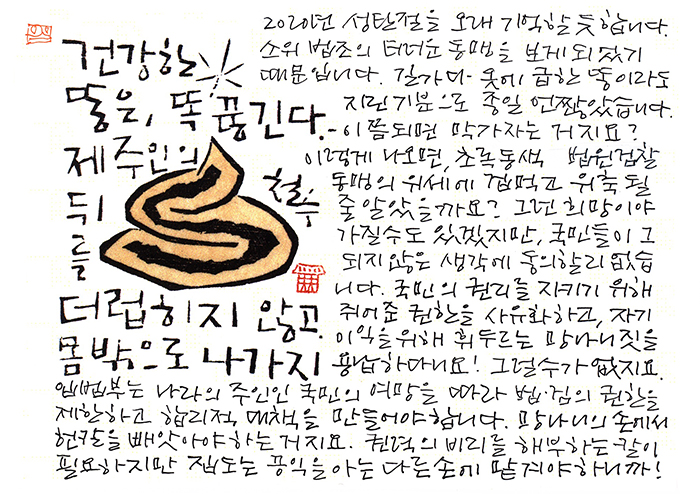 건강한
똥은, 똑 끊긴다.-
제 주인의
뒤
를
철수
더럽히지 않고.
몸 밖으로 나가지
2020년 성탄절을 오래 기억할 듯 합니다.
소위 법조의 더러운 동맹을 보게 되었기
때문입니다. 길가다 옷에 급한 똥이라도
지린 기분으로 종일 언짢았습니다.
이쯤되면 막가자는 거지요?
이렇게 나오면, 초록동색 법원검찰
동맹의 위세에 겁먹고 위축될
줄 알았을까요? 그런 희망이야
가질수도 있겠지만, 국민들이 그
되지않은 생각에 동의할리 없습
니다. 국민의 권리를 지키기 위해
쥐어준 권한을 사유화하고, 자기
이익을 위해 휘두르는 망나니짓을
용납하다니요! 그럴수가 없지요.
입법부는 나라의 주인인 국민의 여망을 따라 법·검의 권한을
제한하고 합리적 대책을 만들어야 합니다. 망나니의 손에서
헌칼을 빼앗아야 하는 거지요. 권력의 비리를 해부하는 칼이
필요하지만 집도는 공익을 아는 다른손에 맡겨야하니까!